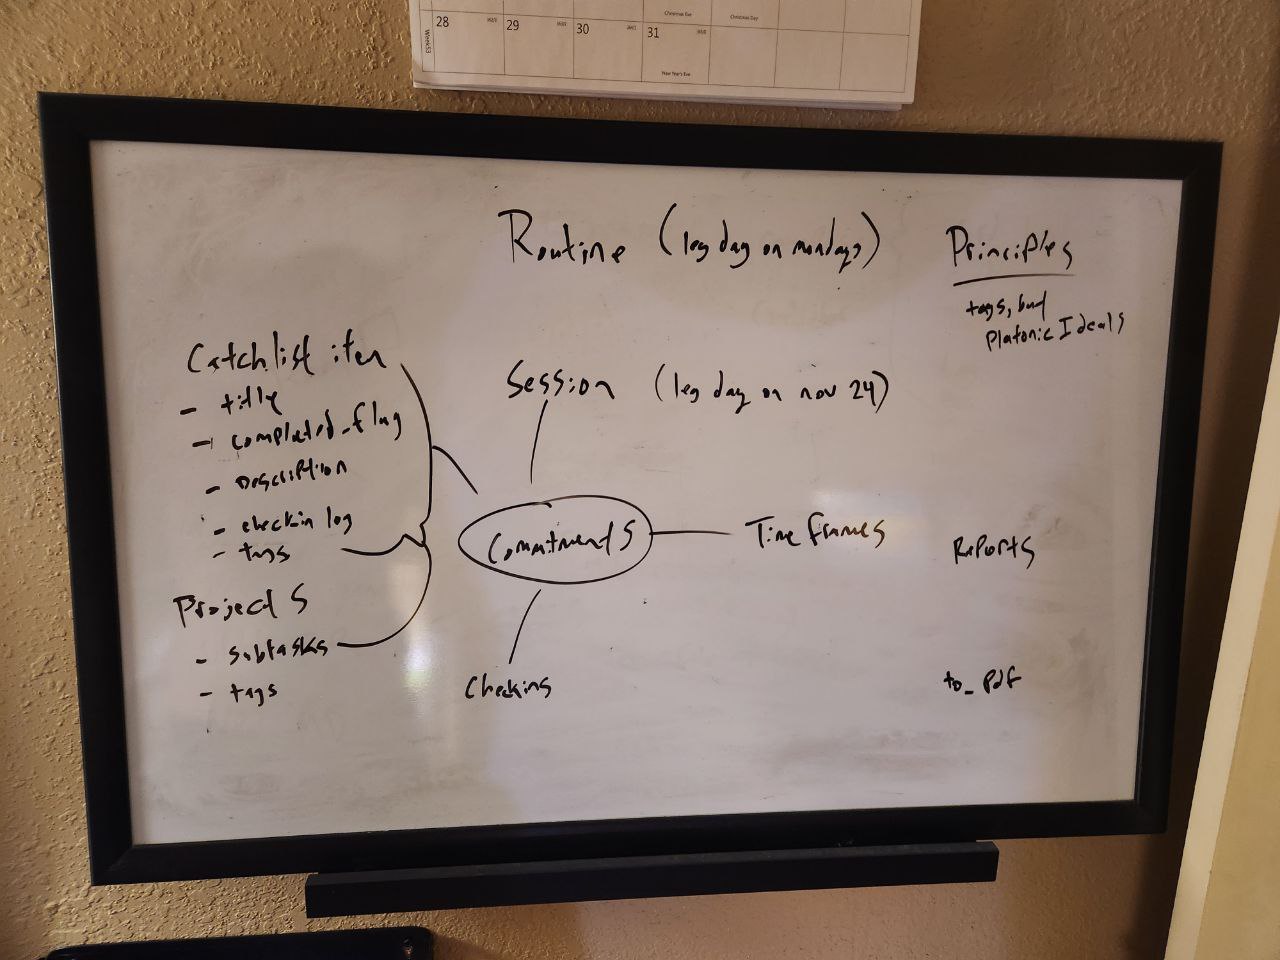 Week 53
28
29
30
31
Christmas Eve
Christmas Day
New Year's Eve
Routine (leg day on mondays)
Principles
tags, but
Platonic Ideals
Catchlist item
- title
- completed_flag
- Description
- checkin log
- tags
Projects
- subtasks
- tags
Session (leg day on nov 24)
Commitments
Time frames
Checkins
Reports
to_pdf